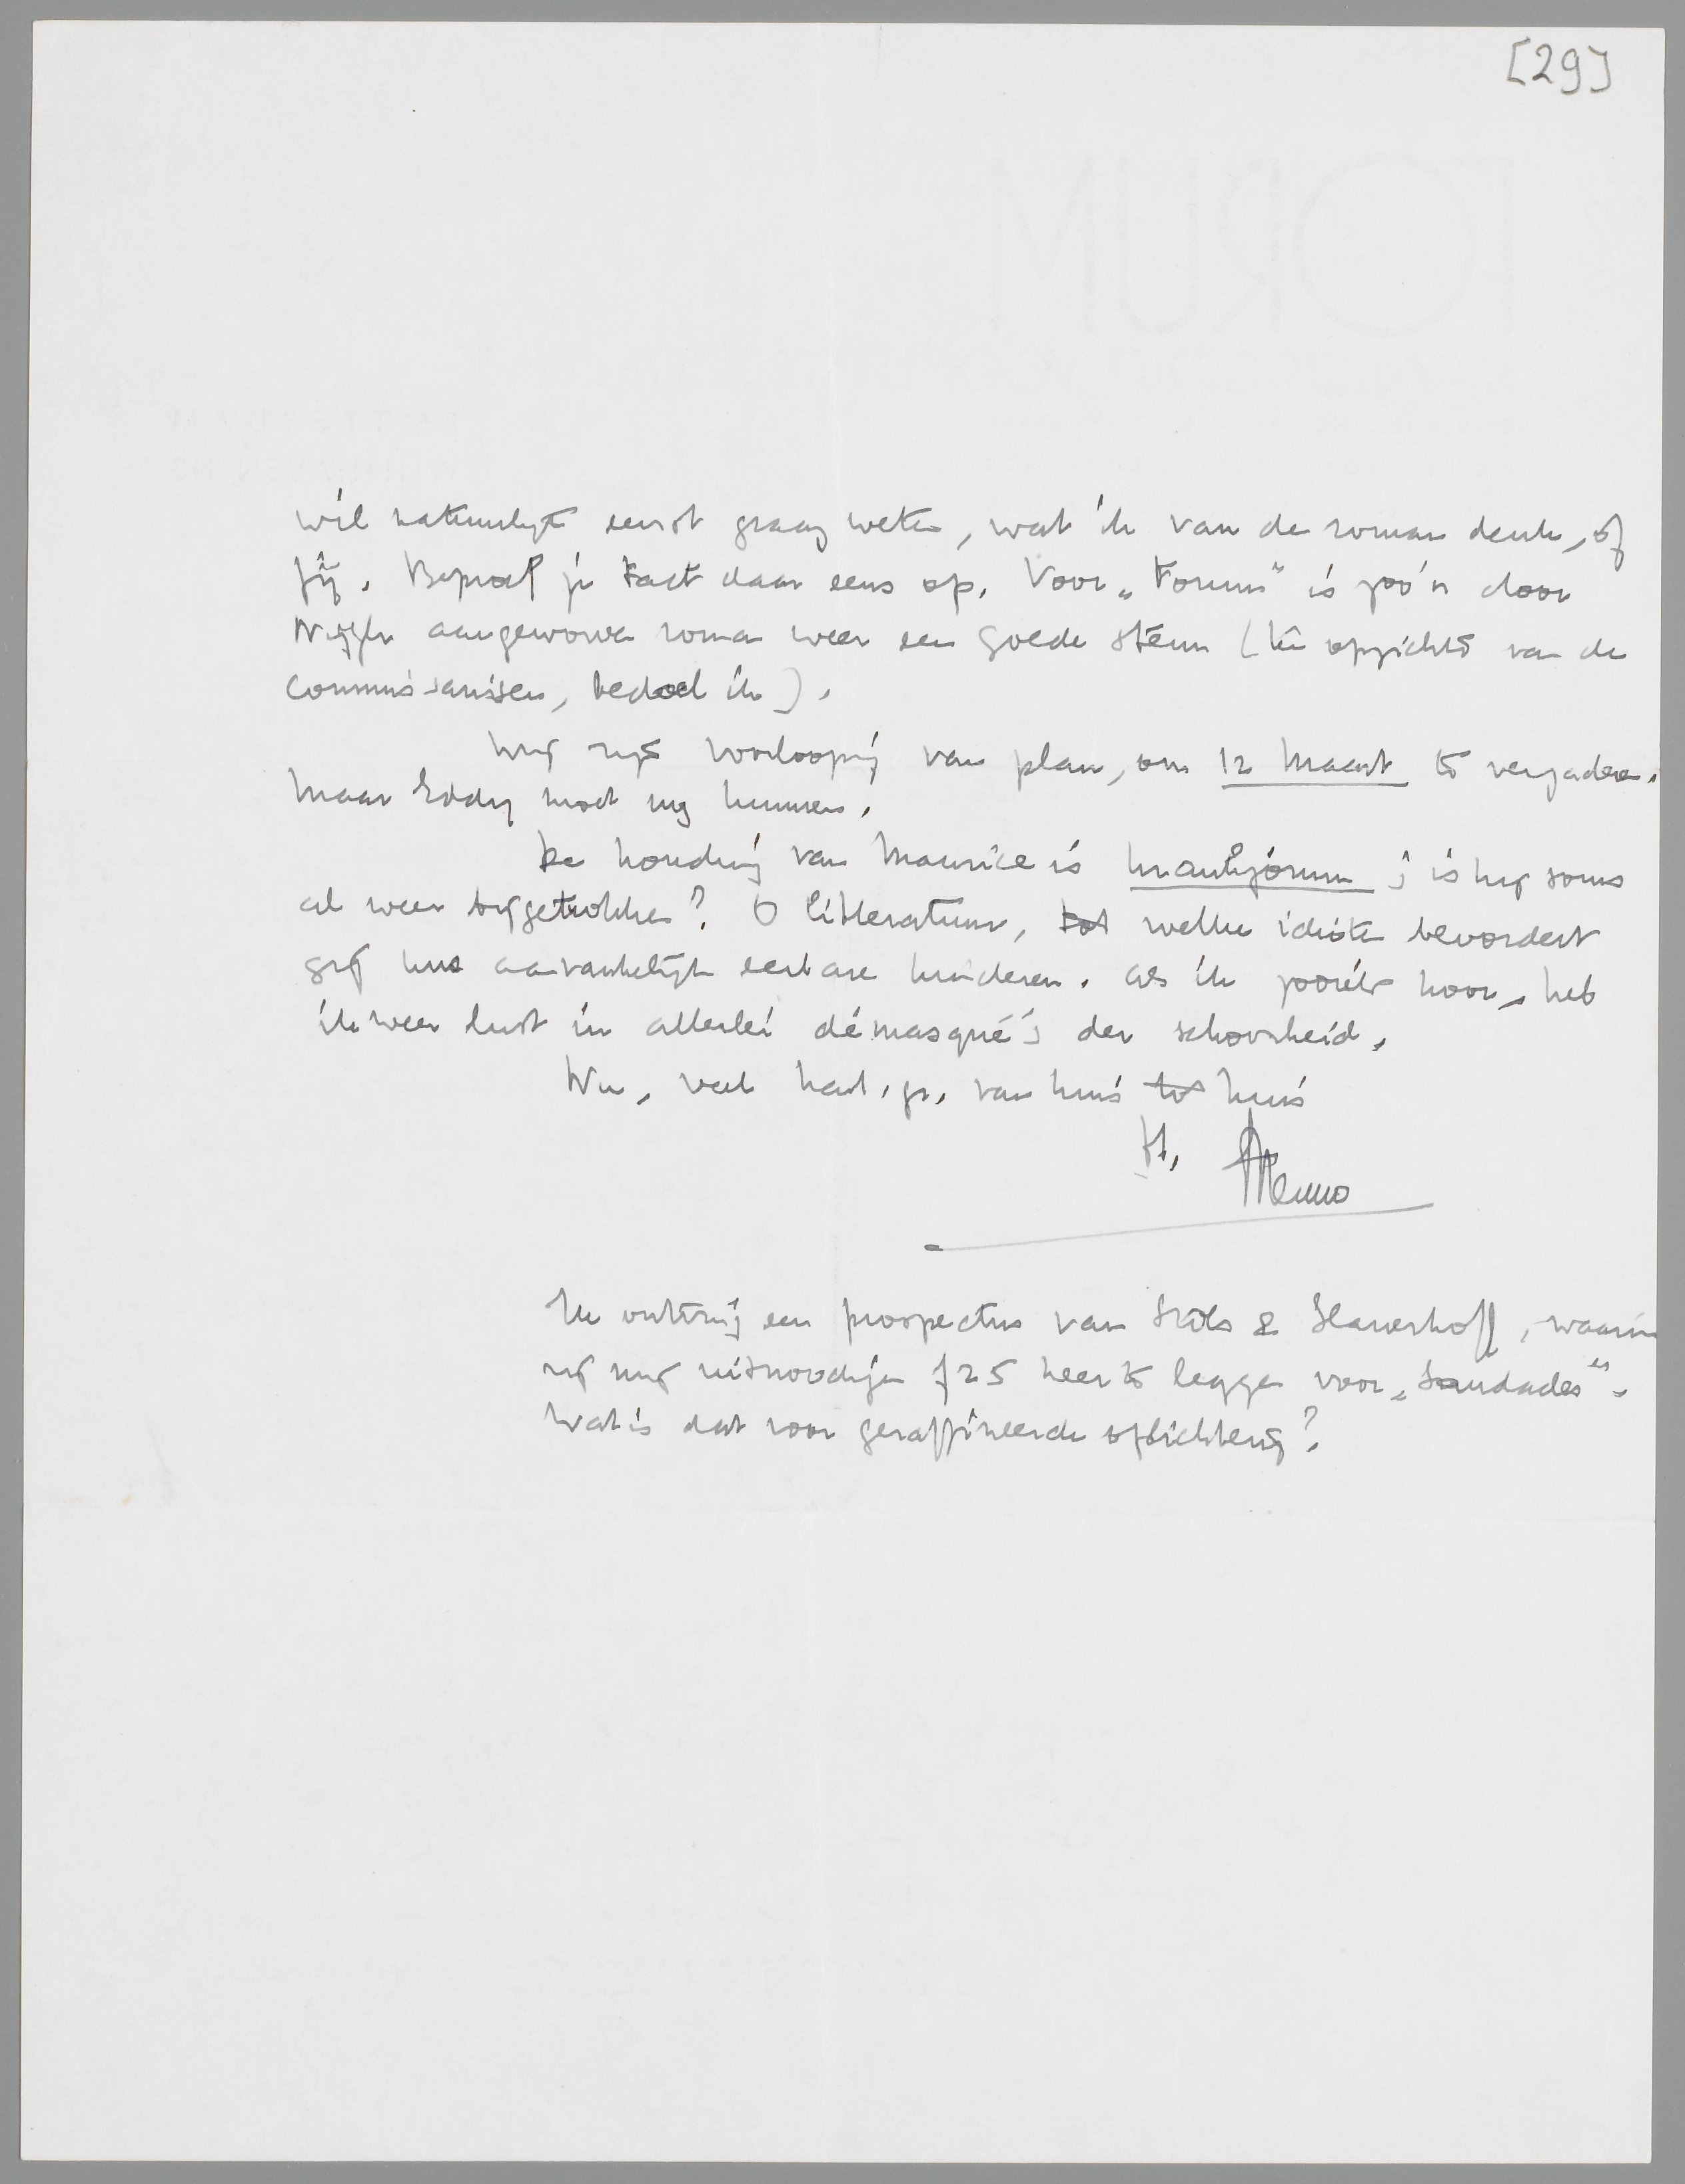 [29]
wil natuurlijk eerst graag weten, wat ik van de roman denk, of
jij. Beproef je tact daar eens op. Voor „Forum" is zoo'n door
Nijgh aangeworven roman weer een goede steun (ten opzichte van de
commissarissen, bedoel ik).
Wij zijn voorloopig van plan, om 12 Maart te vergaderen.
Maar Eddy moet nog kunnen.
De houding van Maurice is krankjorum; is hij soms
al weer bijgetrokken? O litteratuur, tot welke idioten bevordert
gij uw aanvankelijk eerbare kinderen. Als ik zooiets hoor, heb
ik weer lust in allerlei démasqué's der schoonheid.
Nu, veel hart. gr. van huis tot huis
H. Menno
Ik ontving een prospectus van Stols & Slauerhoff, waarin
zij mij uitnoodigen f 25 neer te leggen voor „Saudades".
Wat is dat voor geraffineerde oplichterij?